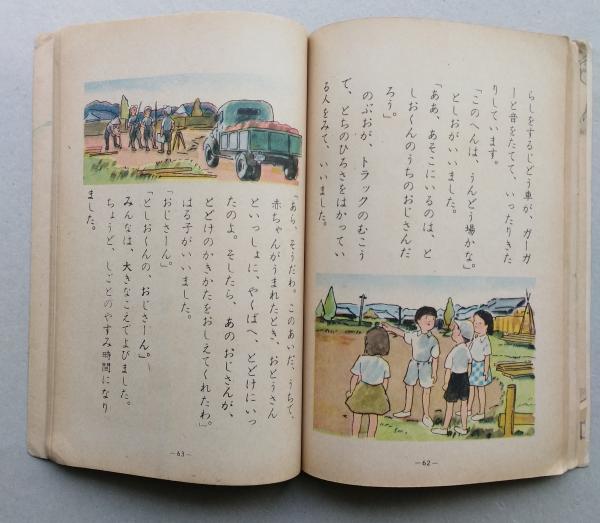 らしをするじどう車が、ガーガ
ーと音をたてて、いったりきた
りしています。
「このへんは、うんどう場かな。」
としおがいいました。
「ああ、あそこにいるのは、と
しおくんのうちのおじさんだ
ろう。」
のぶおが、トラックのむこう
で、とちのひろさをはかってい
る人をみて、いいました。
—62—
「あら、そうだわ。このあいだ、うちで、
赤ちゃんがうまれたとき、おとうさん
といっしょに、やくばへ、とどけにいっ
たのよ。そしたら、あのおじさんが、
とどけのかきかたをおしえてくれたわ。」
はる子がいいました。
「おじさーん。」
「としおくんの、おじさーん。」
みんなは、大きなこえでよびました。
ちょうど、しごとのやすみ時間になり
ました。
—63—